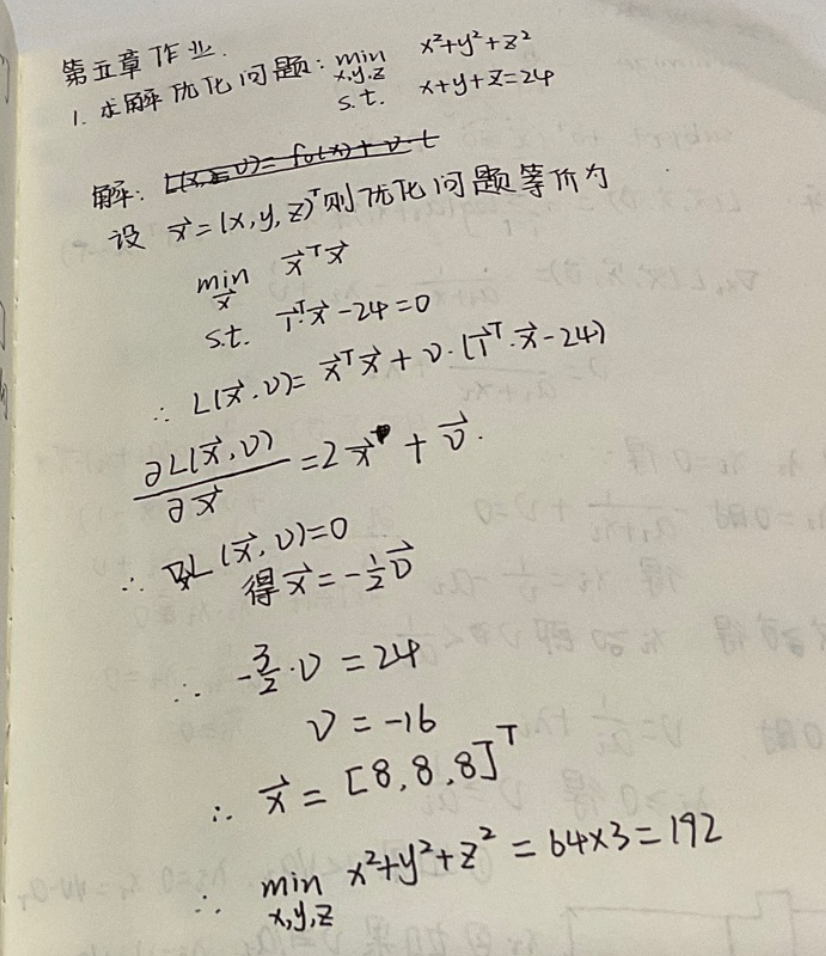 第五章作业.
1. 求解优化问题: min x²+y²+z²
x,y,z
s.t. x+y+z=24
解:
设 x⃗=(x,y,z)ᵀ则优化问题等价为
min x⃗ᵀx⃗
x⃗
s.t. 1⃗ᵀ·x⃗-24=0
∴ L(x⃗,ν)= x⃗ᵀx⃗+ν·(1⃗ᵀ·x⃗-24)
∂L(x⃗,ν)/∂x⃗ =2x⃗+ν⃗.
∴ 取L(x⃗,ν)=0
得x⃗=-½ν⃗
∴ -3/2·ν=24
ν=-16
∴ x⃗=[8,8,8]ᵀ
∴ min x²+y²+z²=64×3=192
x,y,z